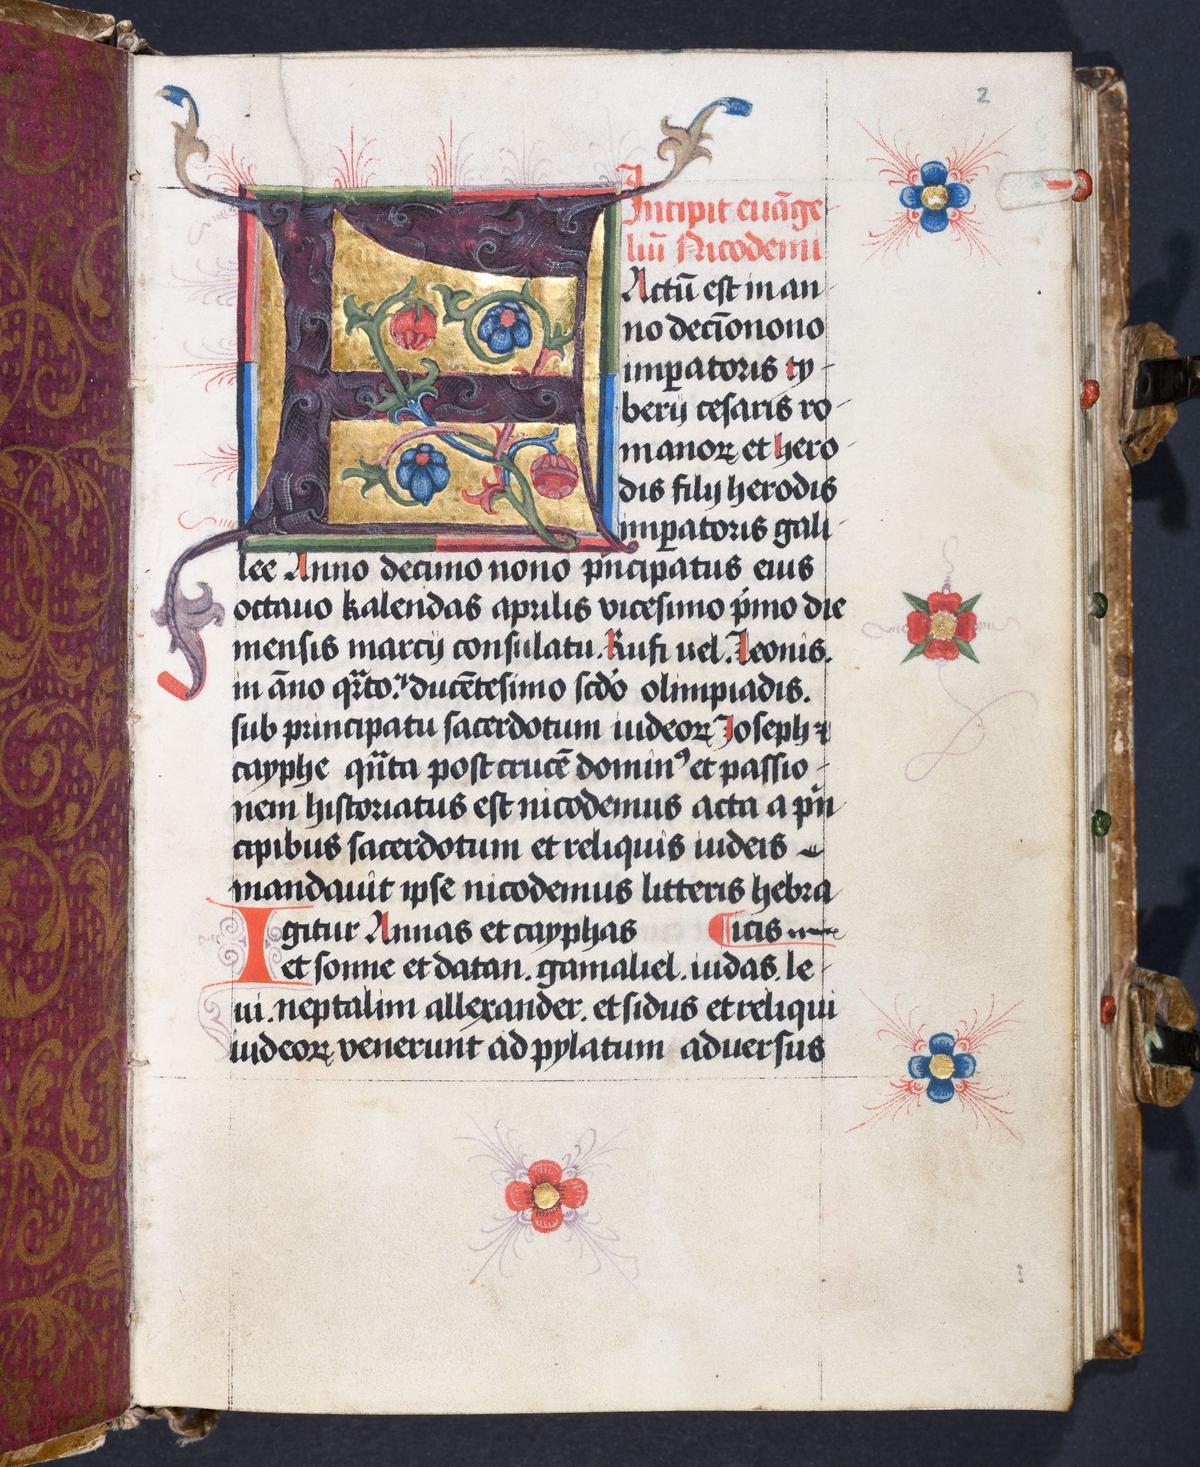 2
Incipit euāge
liū Nicodemi
FActū est in an
no decīonono
imꝑatoris ty
berij cesaris ro
manoꝝ et hero
dis filij herodis
imꝑatoris gali
lee Anno decimo nono pͥncipatus eius
octauo kalendas aprilis vicesimo pͥmo die
mensis marcij consulatu. Rufi uel. Leonis.
in āno qͣrto. ducētesimo scd̄o olimpiadis.
sub principatu sacerdotum iudeoꝝ Joseph ⁊
cayphe qͥnta post crucē dominꝰ et passio
nem historiatus est nicodemus acta a pͥn
cipibus sacerdotum et reliquis iudeis
mandauit ipse nicodemus litteris hebra
Igitur Annas et cayphas ¶icis
et sonne et datan. gamaliel. iudas. le
ui. neptalim allexander. et sidus et reliqui
iudeoꝝ venerunt ad pylatum aduersus